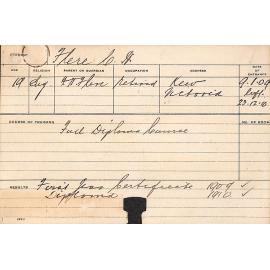 STUDENT Flere C. H.
AGE RELIGION PARENT OR GUARDIAN OCCUPATION ADDRESS DATE OF ENTRANCE
19 Retired Kew 9.1.09
Victoria Left
23.12.10
COURSE OF TRAINING NO. OF BOOK
Full Diploma Course
RESULTS First Year Certificate 1909 ✓
Diploma 1910 ✓